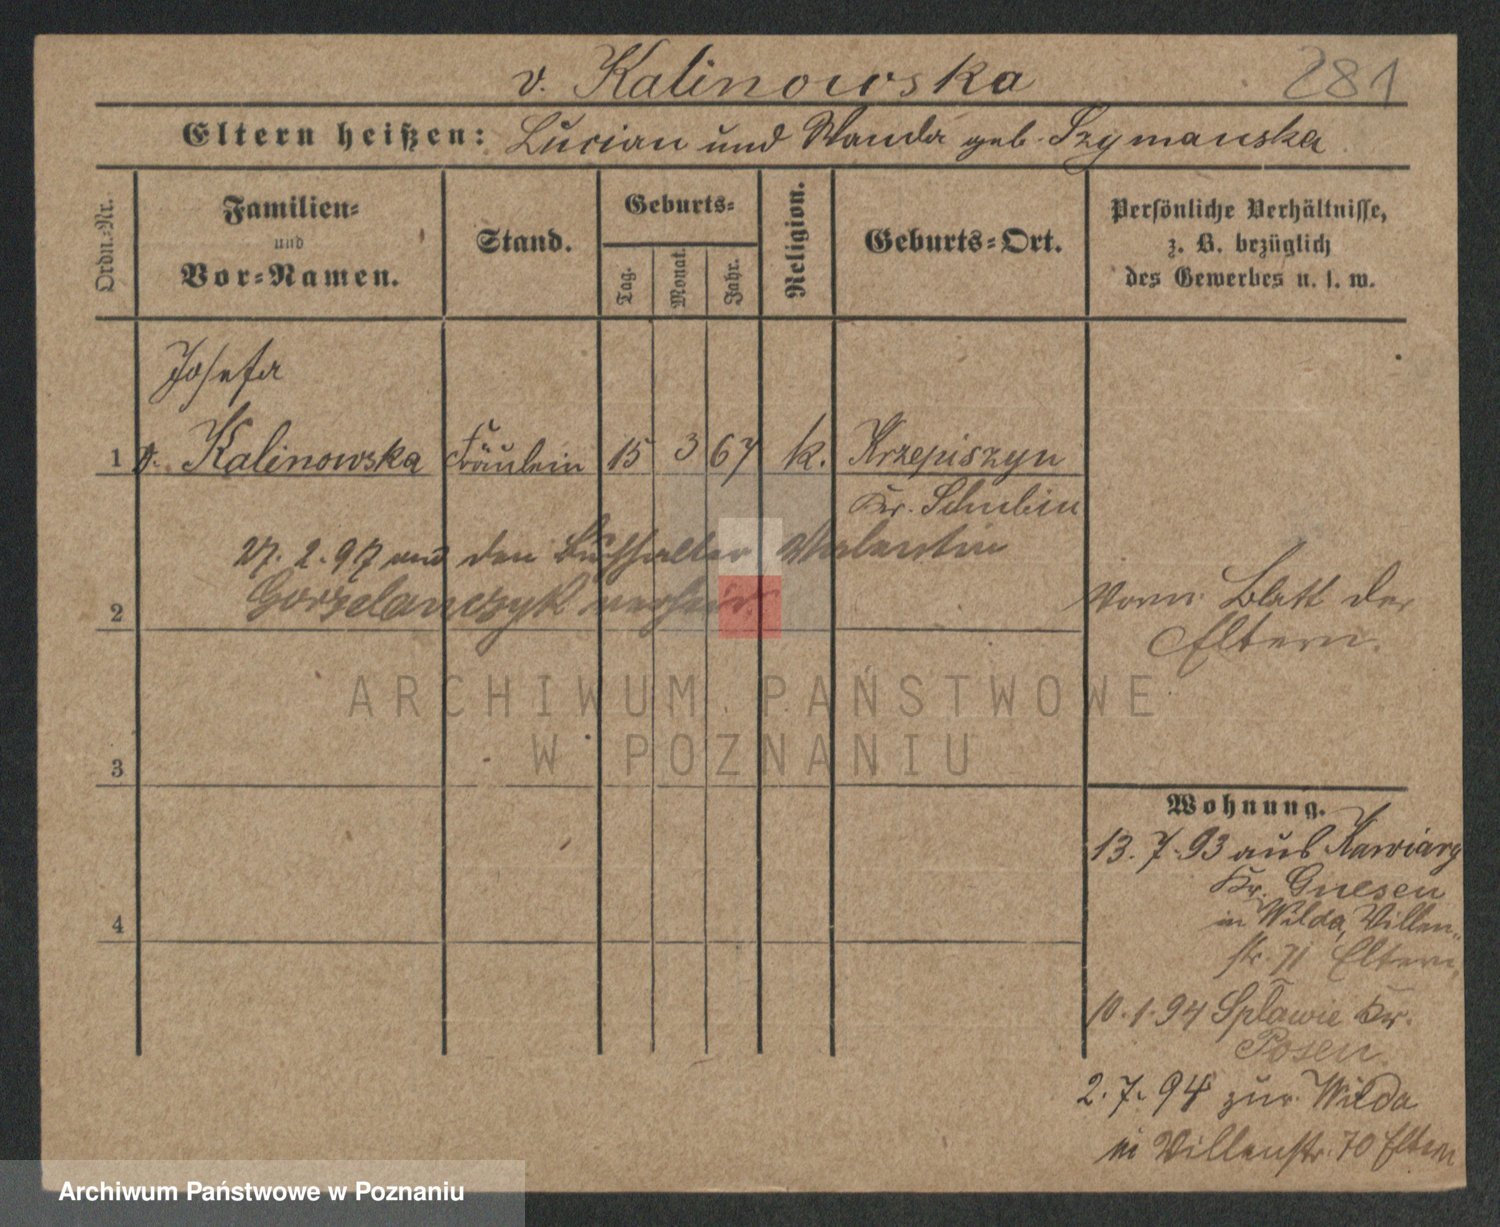 v. Kalinowska
281
Eltern heißen: Lucian und Wanda geb. Szymanska
Ordn.-Nr.
Familien-
und
Vor-Namen.
Stand.
Geburts-
Tag.
Monat.
Jahr.
Religion.
Geburts-Ort.
Persönliche Verhältnisse,
z. B. bezüglich
des Gewerbes u. s. w.
Josefa
1 v. Kalinowska Fräulein 15 3 67 k. Krzepiszyn
Kr. Schubin
27. 2. 97 den Buchhalter Valentin
Gorzelanczyk verheir.
2
Vorn. Blatt der
Eltern.
ARCHIWUM PAŃSTWOWE
W POZNANIU
3
Wohnung.
13. 7. 93 aus Kawiary
Kr. Gnesen
in Wilda, Villen-
str. 71 Eltern,
4
10. 1. 94 Spławie Kr.
Posen
2. 7. 94 zur. Wilda
in Villenstr. 70 Eltern
Archiwum Państwowe w Poznaniu